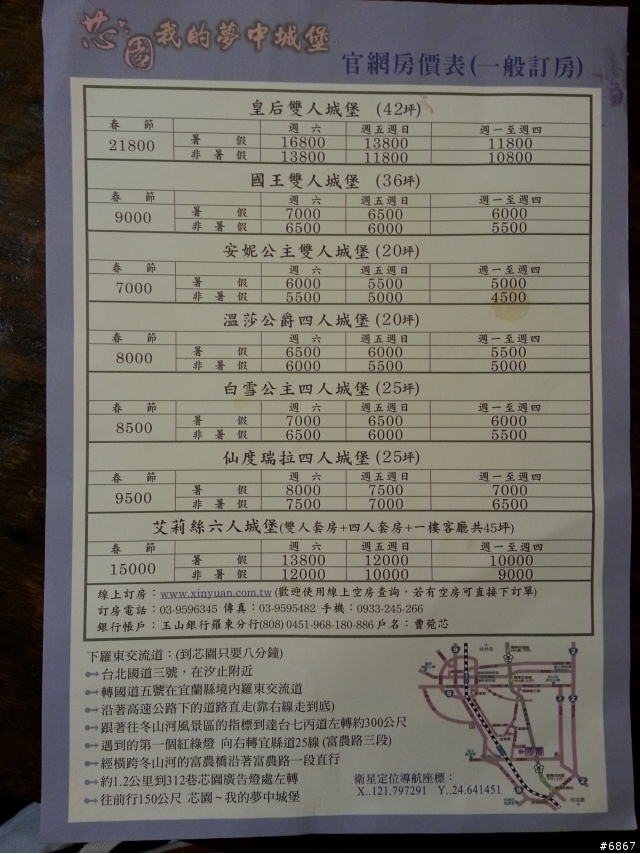 芯園我的夢中城堡
官網房價表(一般訂房)
皇后雙人城堡 (42坪)
春節 週六 週五週日 週一至週四
21800 暑假 16800 13800 11800
非暑假 13800 11800 10800
國王雙人城堡 (36坪)
春節 週六 週五週日 週一至週四
9000 暑假 7000 6500 6000
非暑假 6500 6000 5500
安妮公主雙人城堡 (20坪)
春節 週六 週五週日 週一至週四
7000 暑假 6000 5500 5000
非暑假 5500 5000 4500
溫莎公爵四人城堡 (20坪)
春節 週六 週五週日 週一至週四
8000 暑假 6500 6000 5500
非暑假 6000 5500 5000
白雪公主四人城堡 (25坪)
春節 週六 週五週日 週一至週四
8500 暑假 7000 6500 6000
非暑假 6500 6000 5500
仙度瑞拉四人城堡 (25坪)
春節 週六 週五週日 週一至週四
9500 暑假 8000 7500 7000
非暑假 7500 7000 6500
艾莉絲六人城堡(雙人套房+四人套房+一樓客廳共45坪)
春節 週六 週五週日 週一至週四
15000 暑假 13800 12000 10000
非暑假 12000 10000 9000
線上訂房：www.xinyuan.com.tw (歡迎使用線上空房查詢，若有空房可直接下訂單)
訂房電話：03-9596345 傳真：03-9595482 手機：0933-245-266
銀行帳戶：玉山銀行羅東分行(808) 0451-968-180-886 戶名：曹菀芯
下羅東交流道：(到芯園只要八分鐘)
台北國道三號，在汐止附近
轉國道五號在宜蘭縣境內羅東交流道
沿著高速公路下的道路直走(靠右線走到底)
跟著往冬山河風景區的指標到達台七丙道左轉約300公尺
遇到的第一個紅綠燈 向右轉宜縣道25線 (富農路三段)
經橫跨冬山河的富農橋沿著富農路一段直行
約1.2公里到312巷芯園廣告燈處左轉
往前行150公尺 芯園～我的夢中城堡
衛星定位導航座標：
X..121.797291 Y..24.641451
#6867